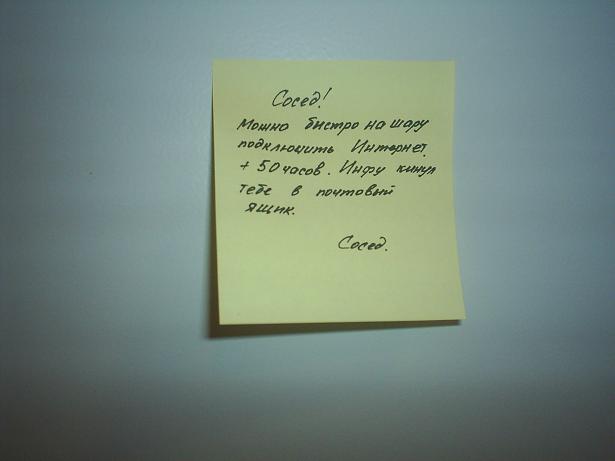 Сосед!
Можно быстро на шару
подключить Интернет.
+ 50 часов. Инфу кинул
тебе в почтовый
ящик.
Сосед.